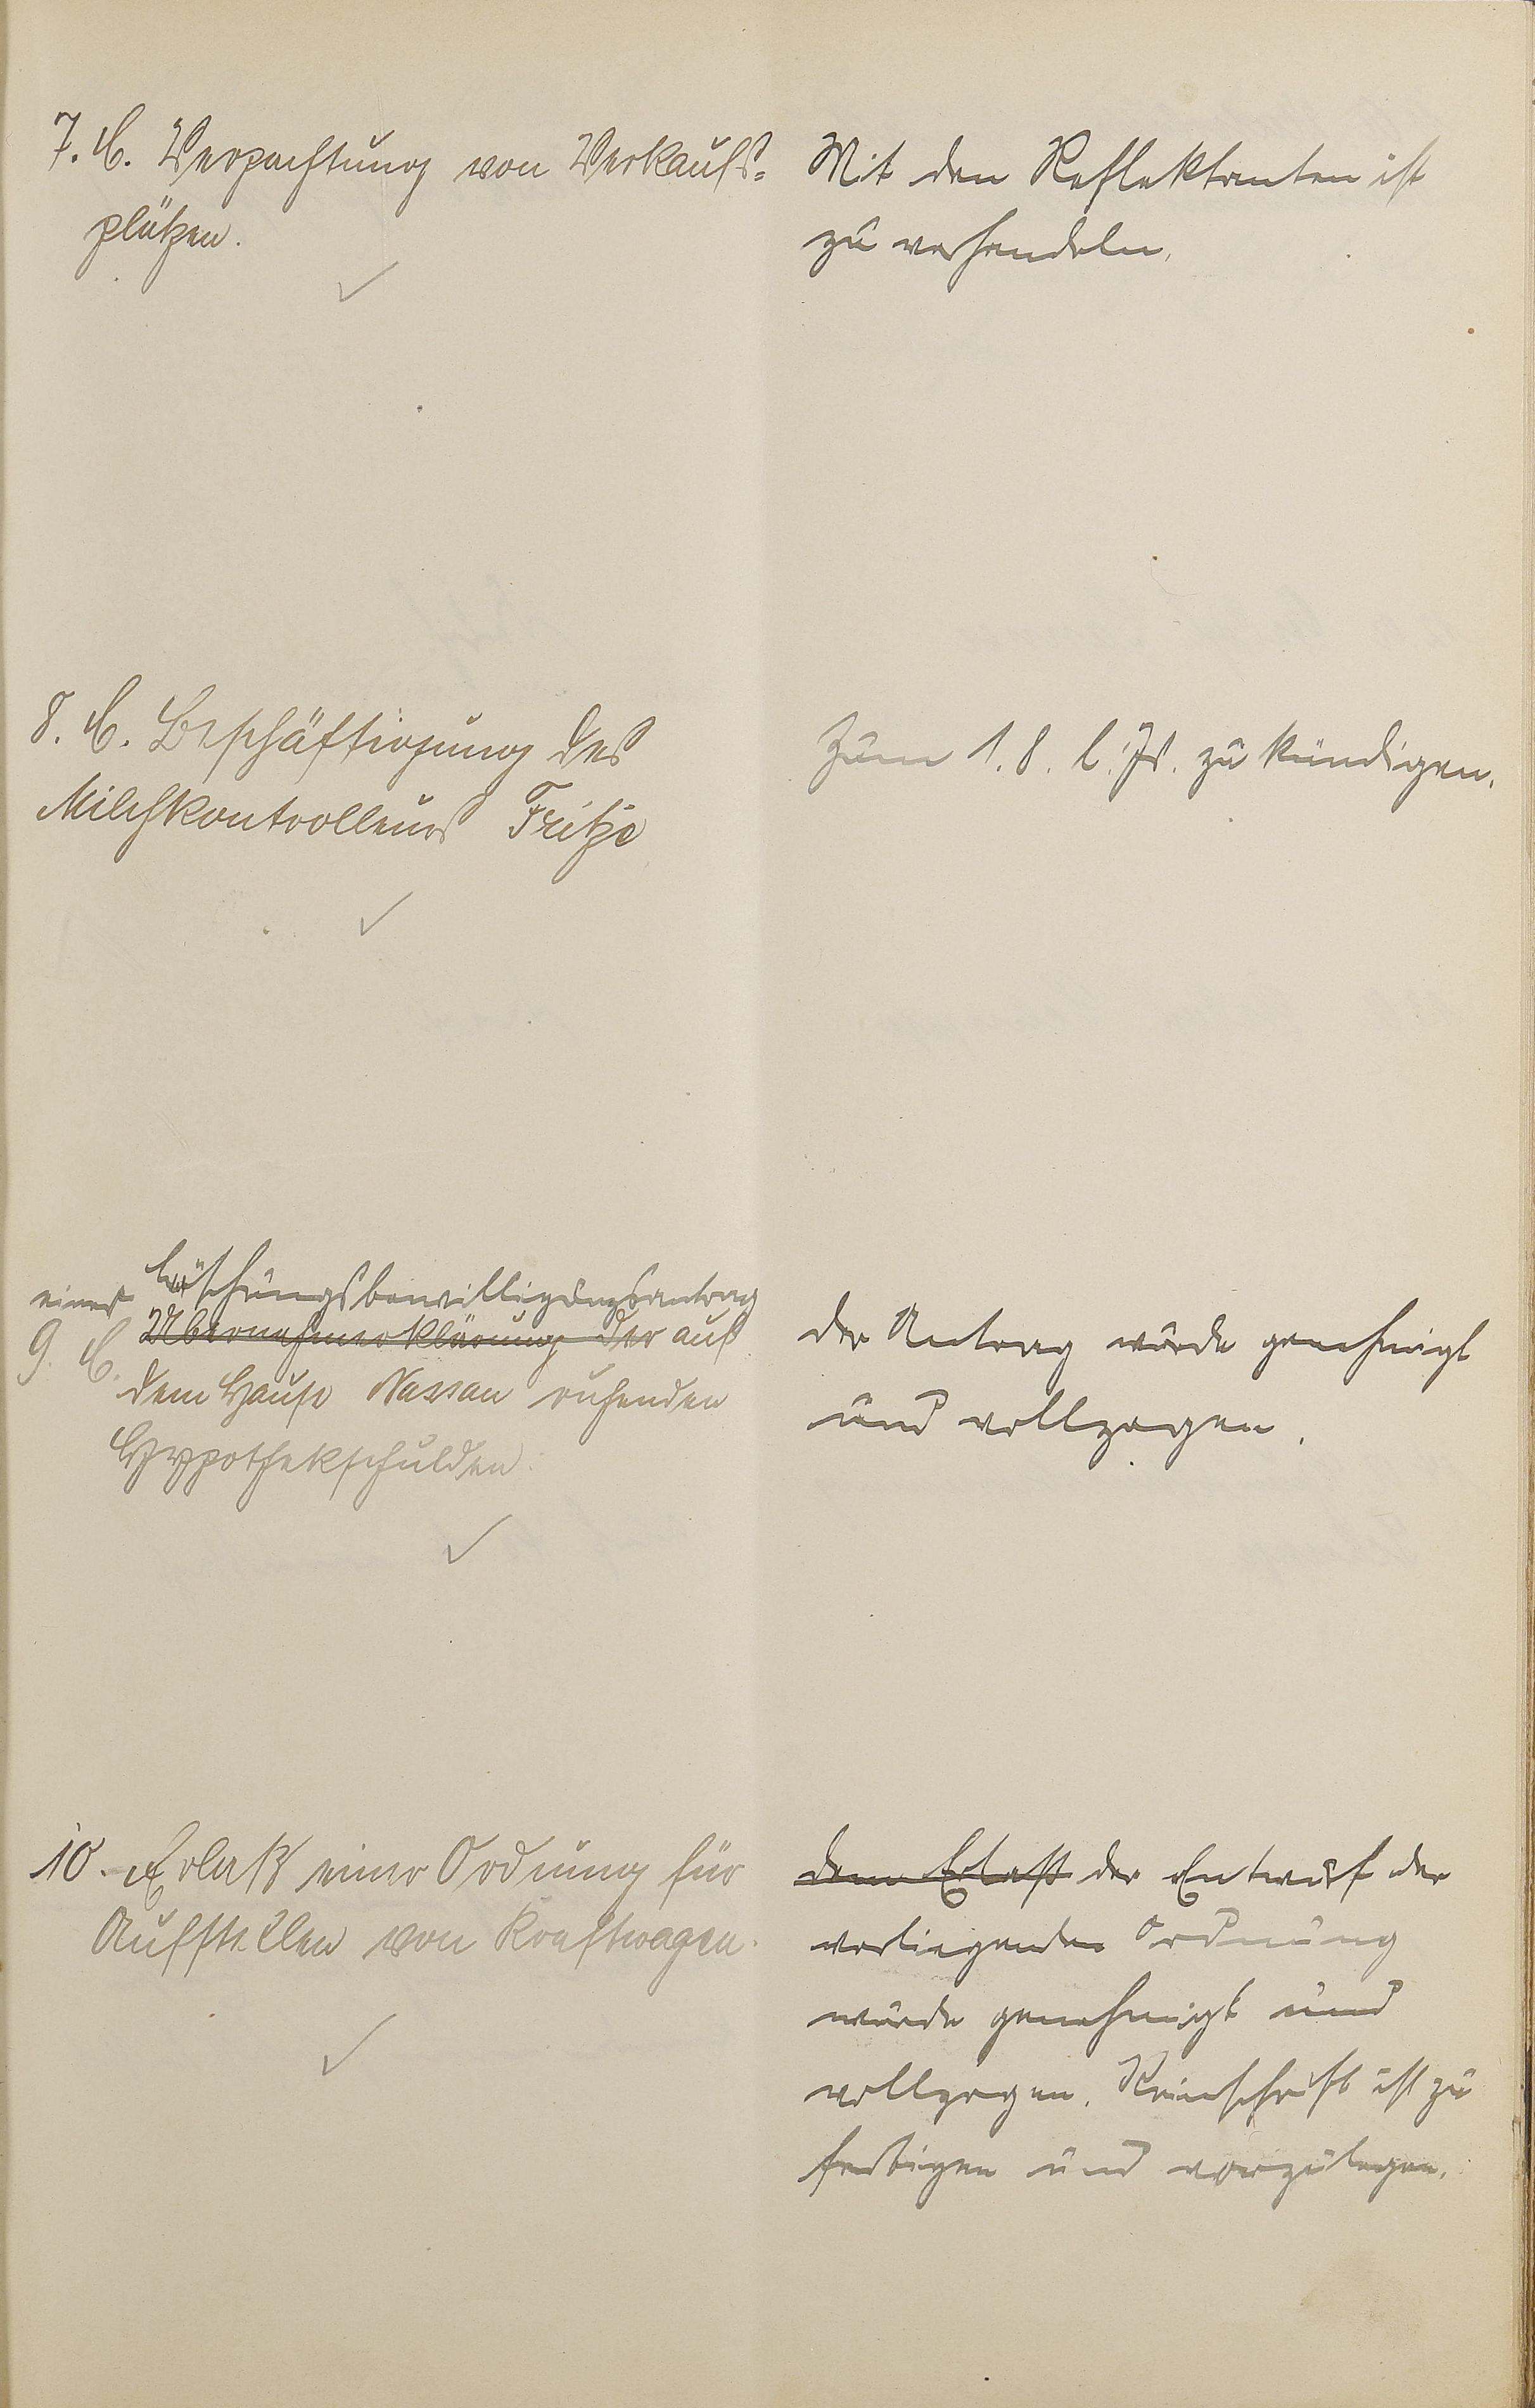 7. C. Verpachtung von Verkaufs-
plätzen.
Mit den Reflektanten ist
zu verhandeln.
8. C. Beschäftigung des
Milchkontrolleurs Fritze
Zum 1. 8. l. Js. zu kündigen.
eines Löschungsbewilligungsantrag
9. C. Übernahmerklärung der auf
dem Hause Nassau ruhenden
Hypothekschulden.
der Antrag wurde genehmigt
und vollzogen.
10. Erlaß einer Ordnung für
Aufstellen von Kraftwagen.
dem Erlaß der Entwurf der
vorliegenden Ordnung
wurde genehmigt und
vollzogen. Reinschrift ist zu
fertigen und vorzulegen.